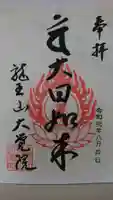 奉拝
大日如来
令和元年八月十四日
龍王山大覚院